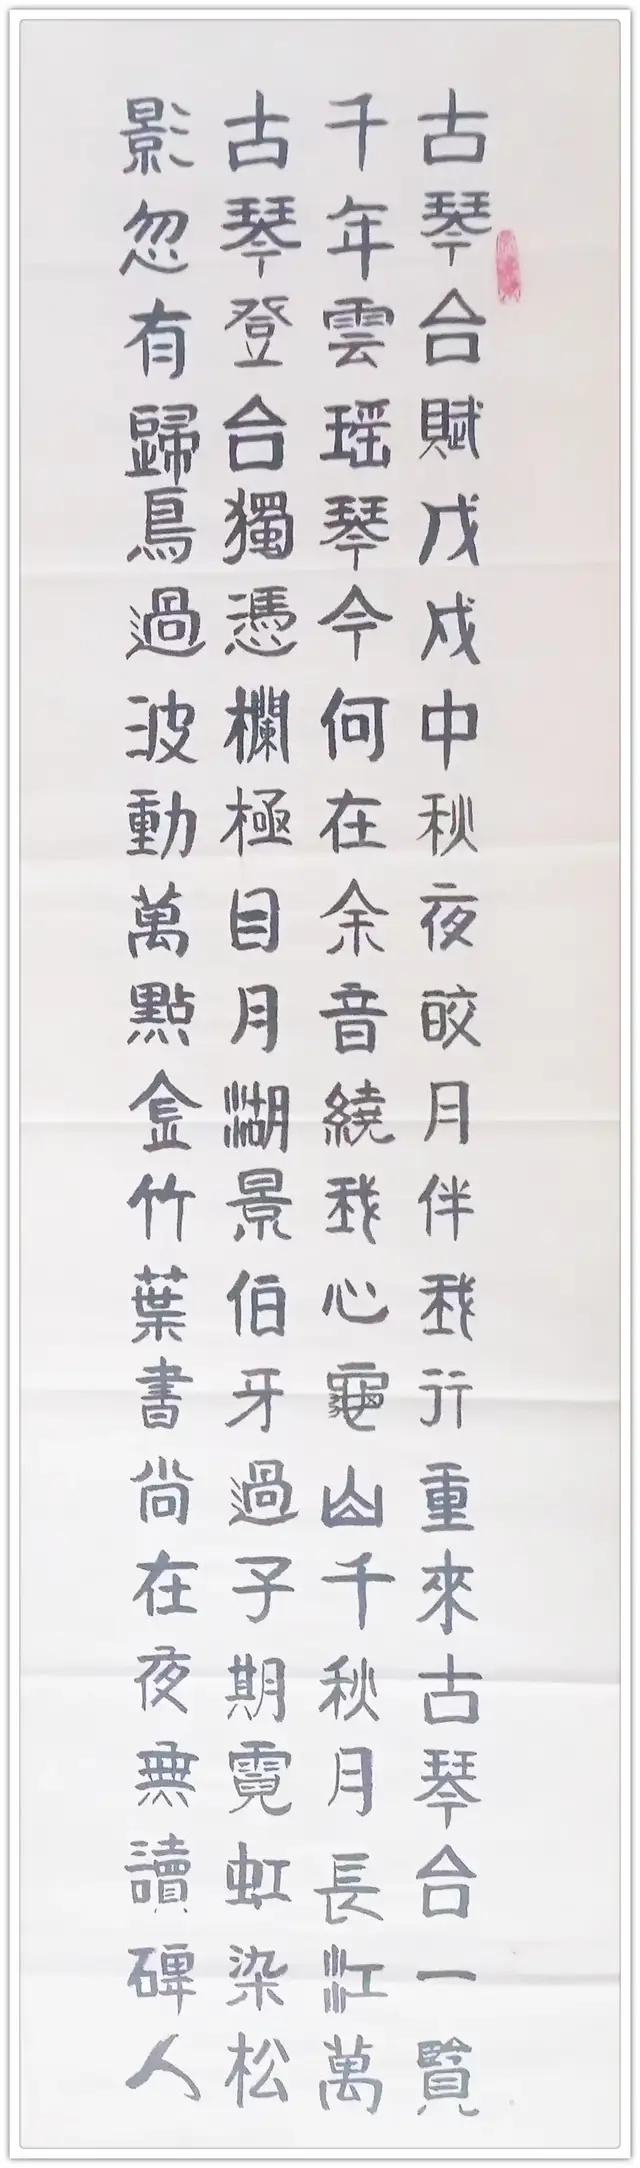 古琴台賦戊戌中秋夜皎月伴我行重來古琴台一覧
千年雲瑶琴今何在余音繞我心龜山千秋月長江萬
古琴登台獨憑欄極目月湖景伯牙過子期霓虹染松
影忽有歸鳥過波動萬點金竹葉書尚在夜無讀碑人